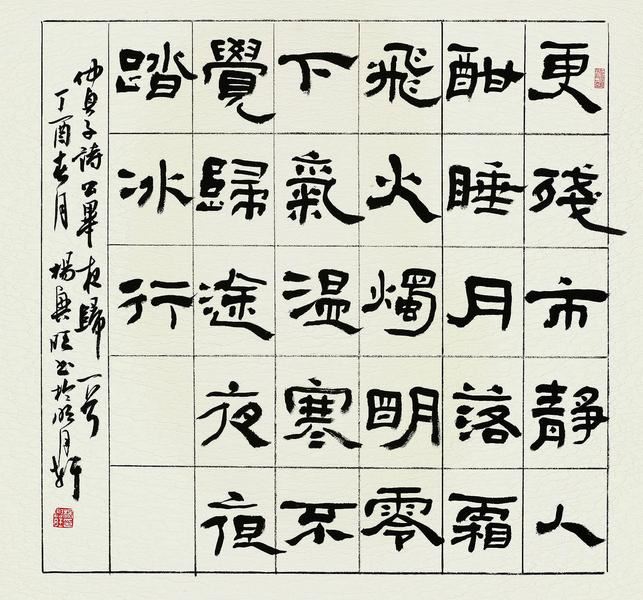 更殘市靜人
酣睡月落霜
飛火燭明零
下氣温寒不
覺歸途夜夜
踏冰行
仲貞子詩公畢夜歸一首
丁酉春月 楊興旺书於明月轩